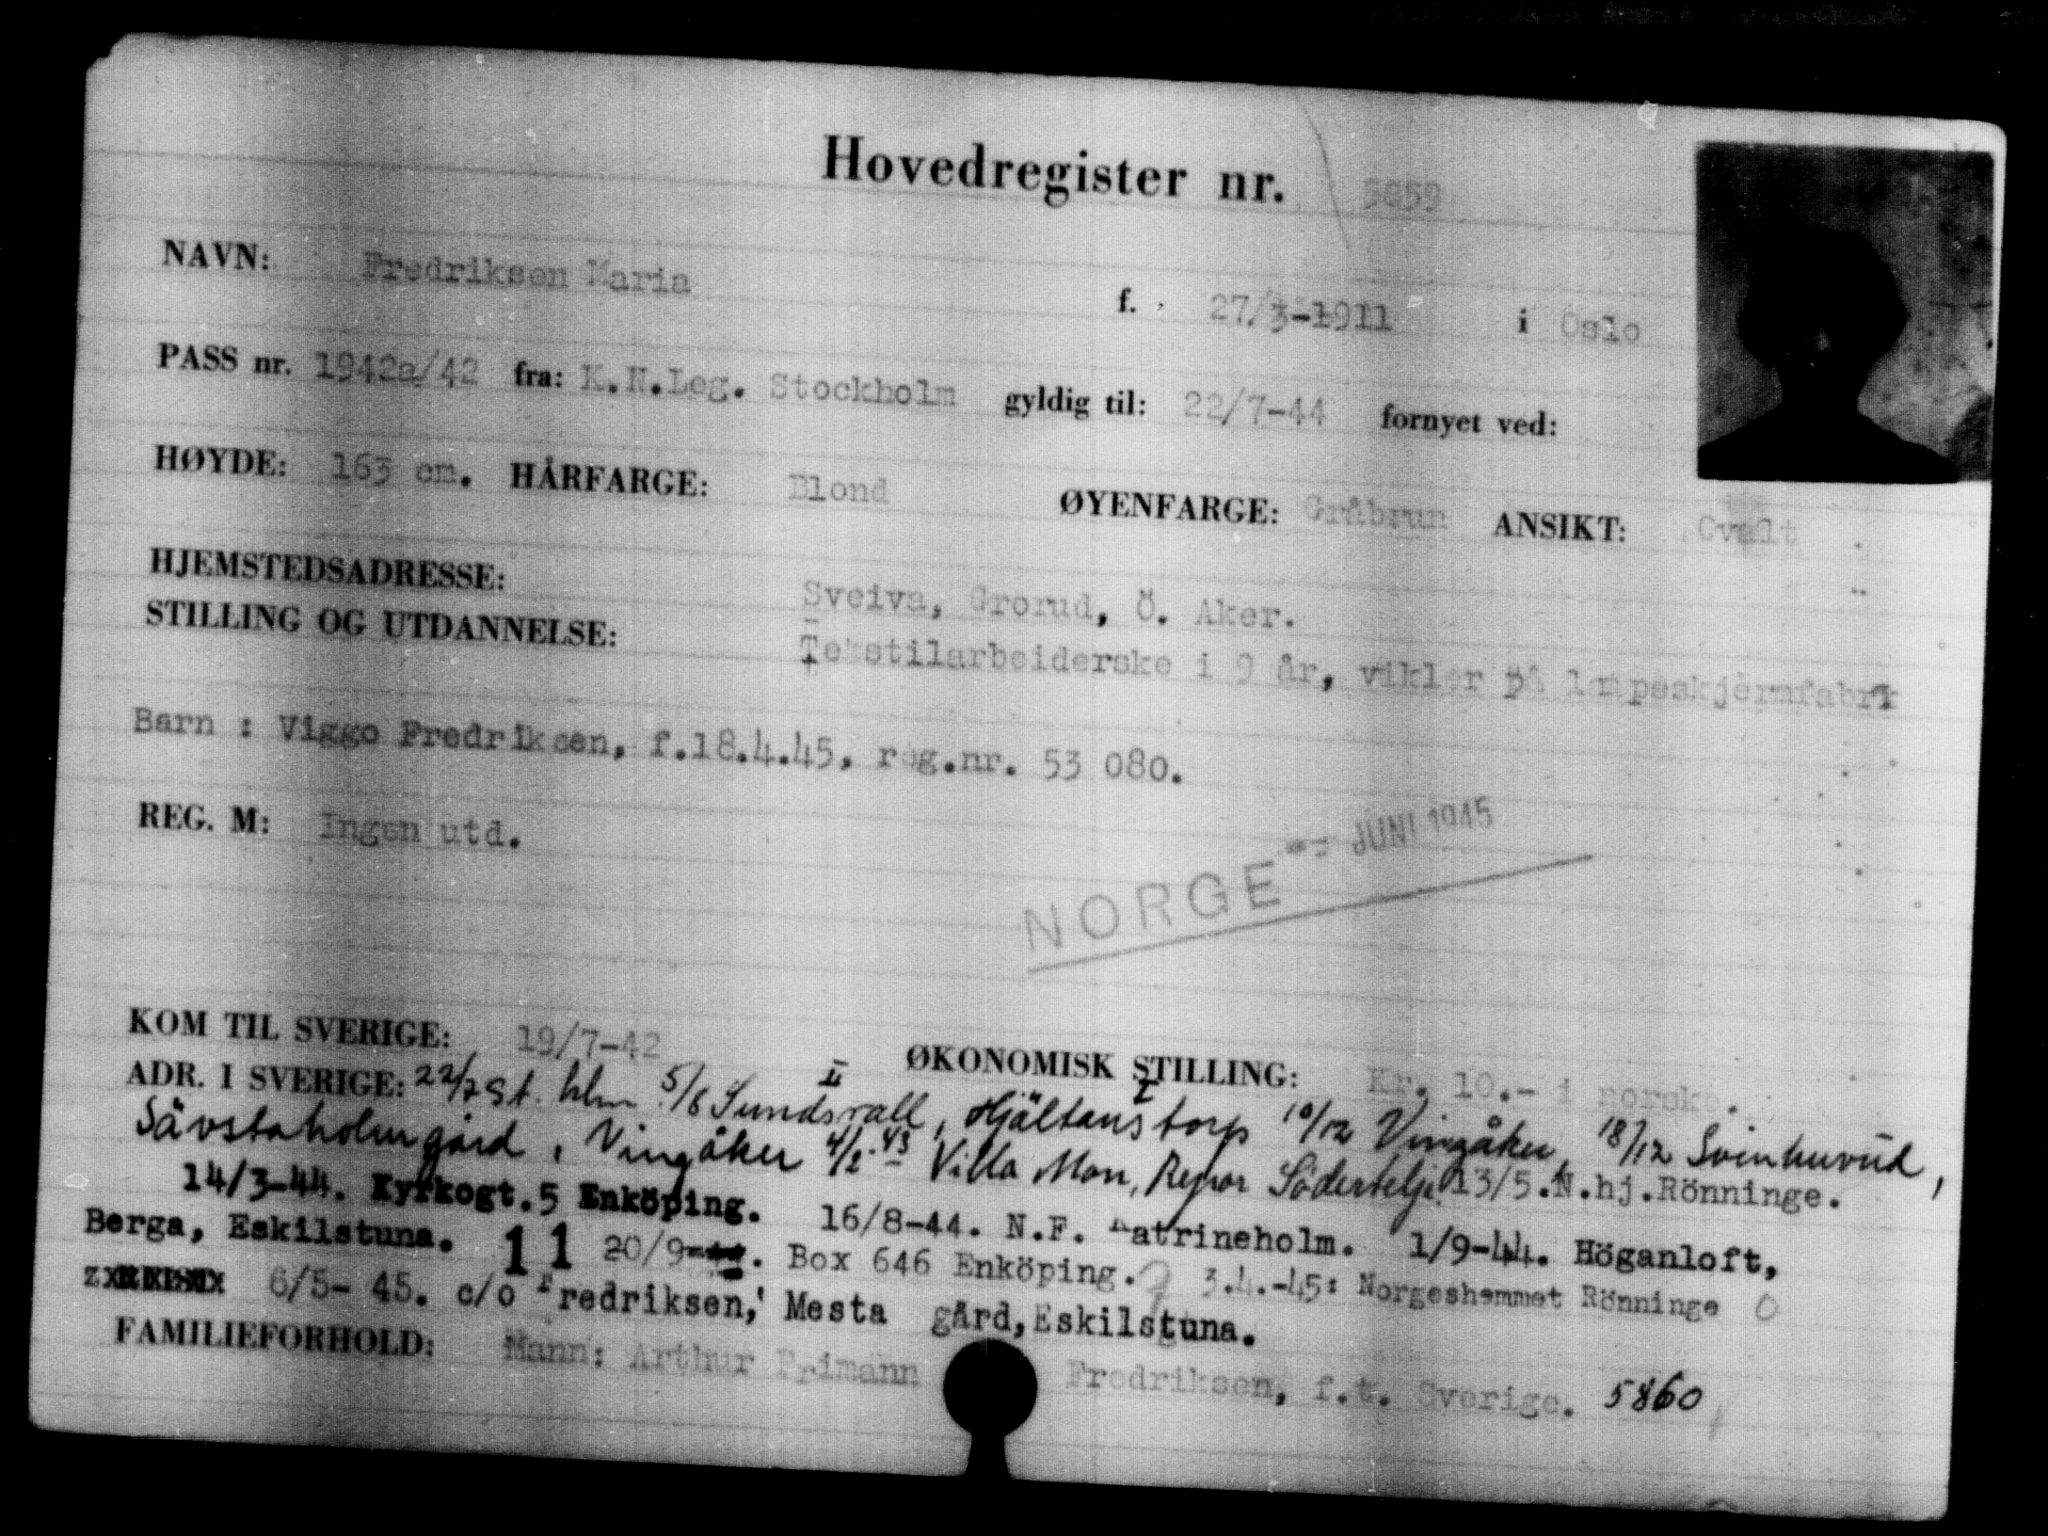 Hovedregister nr. 5859
NAVN: Fredriksen Maria f. 27/3-1911 i Oslo
PASS nr. 1942a/42 fra: K.N.Leg. Stockholm gyldig til: 22/7-44 fornyet ved:
HØYDE: 163 cm. HÅRFARGE: Blond ØYENFARGE: Gråbrun ANSIKT: Ovalt
HJEMSTEDSADRESSE: Sveiva, Grorud, Ö. Aker.
STILLING OG UTDANNELSE: Tekstilarbeiderske i 9 år, vikler på lampeskjermfabrk
Barn : Viggo Fredriksen, f.18.4.45. reg.nr. 53 080.
REG. M: Ingen utd.
NORGE JUNI 1945
KOM TIL SVERIGE: 19/7-42 ØKONOMISK STILLING: Kr. 10.- i norske.
ADR. I SVERIGE: 22/7 St. hlm 5/8 Sundsvall, II Hjältanstorp I 10/12 Vingåker, 18/12 Svinhuvud,
Sävstaholm gård, Vingåker 4/2.43 Villa Mon, Södertelje 13/5.N.hj.Rönninge.
14/3-44. Kyrkogt.5 Enköping. 16/8-44. N.F. Katrineholm. 1/9-44. Höganloft,
Berga, Eskilstuna. 11 20/9-44. Box 646 Enköping. 3.4.-45: Norgeshemmet Rönninge
6/5- 45. c/o Fredriksen, Mesta gård, Eskilstuna.
FAMILIEFORHOLD: Mann: Arthur Frimann Fredriksen, f.t. Sverige. 5860